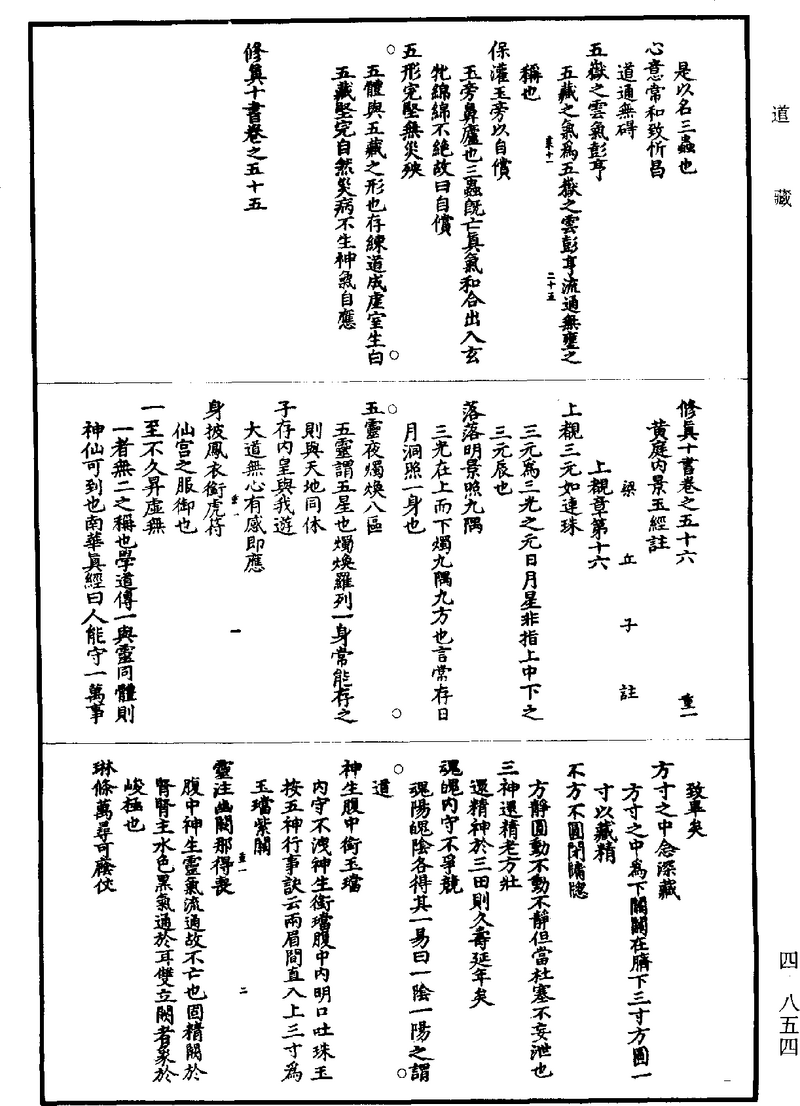 道藏
是以名三蟲也
心意常和致忻昌
道通無碍
五嶽之雲氣彭亨
五藏之氣為五嶽之雲彭亨流通無壅之
菜十一
二十五
稱也
保灌玉旁以自償
玉旁鼻廬也三蟲既亡真氣和合出入玄
牝綿綿不絶故曰自償
五形完堅無災殃
五體與五藏之形也存練道成虛室生白
五藏堅完自然災病不生神氣自應
修真十書卷之五十五
修真十書卷之五十六
重一
黃庭內景玉經註
梁丘子註
上覩章第十六
上覩三元如連珠
三元為三光之元日月星非指上中下之
三元辰也
落落明景照九隅
三光在上而下燭九隅九方也言常存日
月洞照一身也
五靈夜燭煥八區
五靈謂五星也燭煥羅列一身常能存之
則與天地同休
子存內皇與我遊
大道無心有感即應
重一
一
身披鳳衣銜虎符
仙宮之服御也
一至不久昇虛無
一者無二之稱也學道傳一與靈同體則
神仙可到也南華真經曰人能守一萬事
致畢矣
方寸之中念深藏
方寸之中為下關關在臍下三寸方圓一
寸以藏精
不方不圓閉牖牕
方靜圓動不動不靜但當杜塞不妄泄也
三神還精老方壯
還精神於三田則久壽延年矣
魂魄內守不爭競
魂陽魄陰各得其一易曰一陰一陽之謂
道
神生腹中銜玉璫
內守不洩神生銜璫腹中內明口吐珠玉
按五神行事訣云兩眉間直入上三寸為
玉璫紫闕
重一
二
靈注幽闕那得喪
腹中神生靈氣流通故不亡也固精闕於
腎腎主水色黑氣通於耳雙立闕者象於
峻極也
琳條萬尋可蔭仗
四八五四